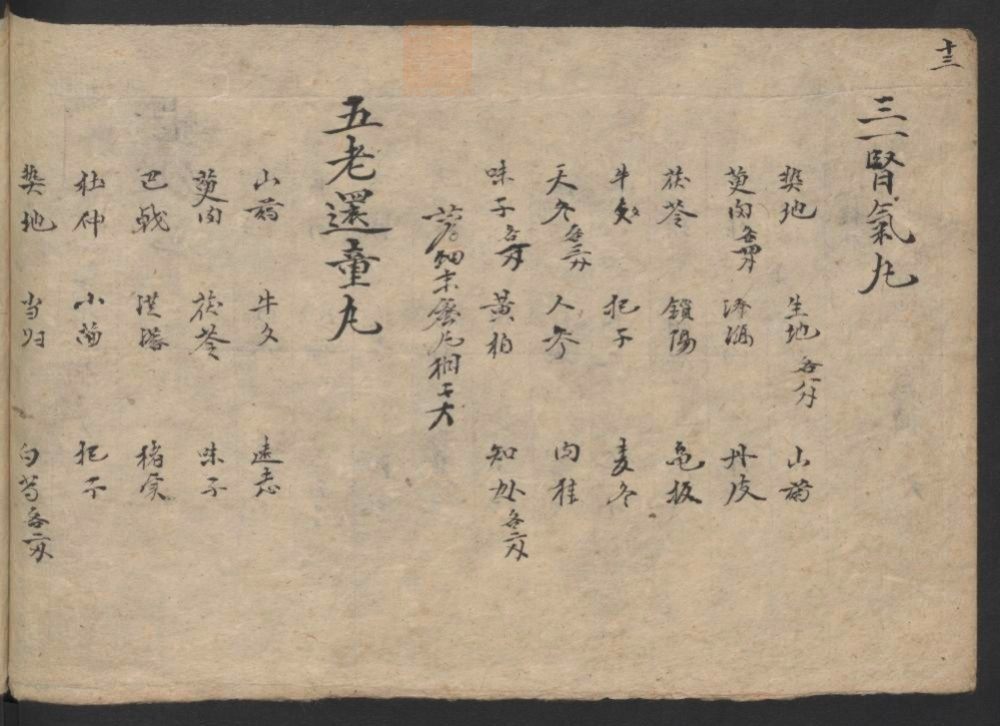 十三
三一腎氣丸
熟地 生地 各一斤 山藥
萸肉 各四分 澤瀉 丹皮
茯苓 鎖陽 龟板
牛夕 杞子 麦冬
天冬 各三分 人参 肉桂
味子 各分 黃柏 知母 各二分
細末 丸桐子大
五老還童丸
山藥 牛夕 遠志
萸肉 茯苓 味子
巴戟 楮實
杜仲 小茴 杞子
熟地 当归 白芍 各二分